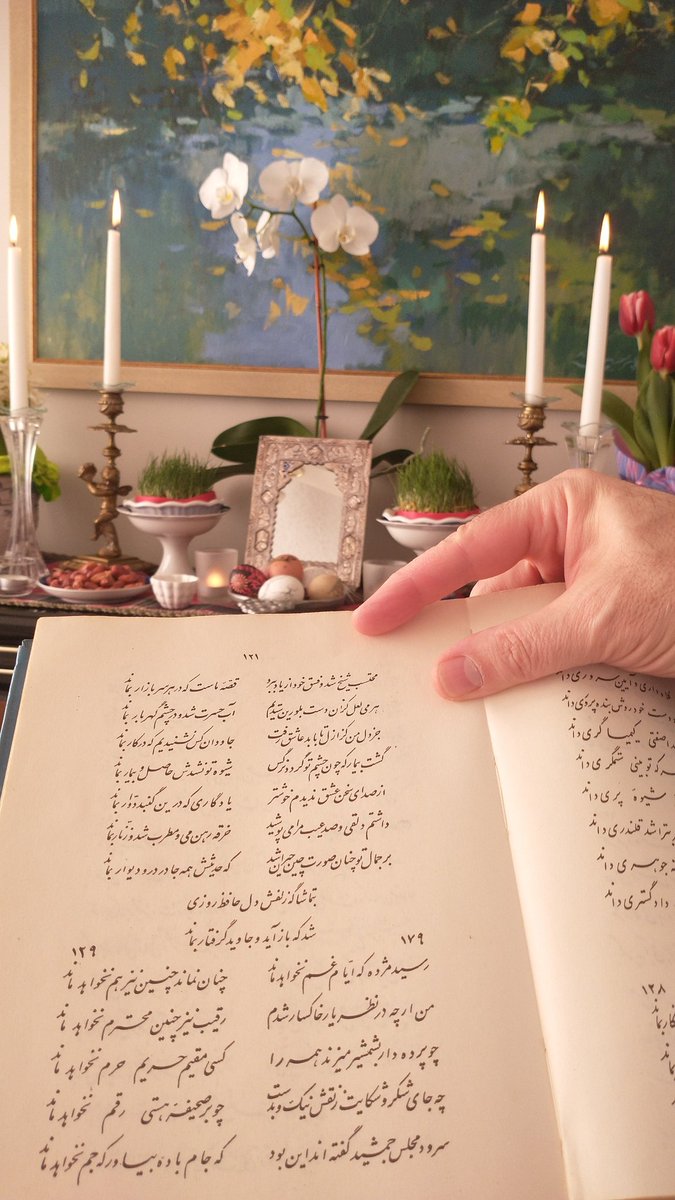 و آیین سروری داند
خود روش بنده پروری داند
صفتی کیمیاگری داند
که تو بینی ستمگری داند
شیوهٔ پری داند
بتراشد قلندری داند
جوهری داند
دادگستری داند
۱۲۸
۱۲۱
محتسب شیخ شد و فسق خود از یاد ببرد قصّهٔ ماست که در هر سر بازار بماند
هر می لعل کزان دست بلورین ستدیم آب حسرت شد و در چشم گهربار بماند
جز دل من کز ازل تا بابد عاشق رفت جاودان کس نشنیدیم که در کار بماند
گشت بیمار که چون چشم تو گردد نرگس شیوهٔ تو نشدش حاصل و بیمار بماند
از صدای سخن عشق ندیدم خوشتر یادگاری که درین گنبد دوّار بماند
داشتم دلقی و صد عیب مرا می پوشید خرقه رهن می و مطرب شد و زنّار بماند
بر جمال تو چنان صورت چین حیران شد که حدیثش همه جا در در و دیوار بماند
بتماشاگه زلفش دل حافظ روزی
شد که باز آید و جاوید گرفتار بماند
۱۷۹ ۱۲۹
رسید مژده که ایّام غم نخواهد ماند چنان نماند چنین نیز هم نخواهد ماند
من ار چه در نظر یار خاکسار شدم رقیب نیز چنین محترم نخواهد ماند
چو پرده دار بشمشیر میزند همه را کسی مقیم حریم حرم نخواهد ماند
چه جای شکر و شکایت ز نقش نیک و بدست چو بر صحیفهٔ هستی رقم نخواهد ماند
سرود مجلس جمشید گفته اند این بود که جام باده بیاور که جم نخواهد ماند